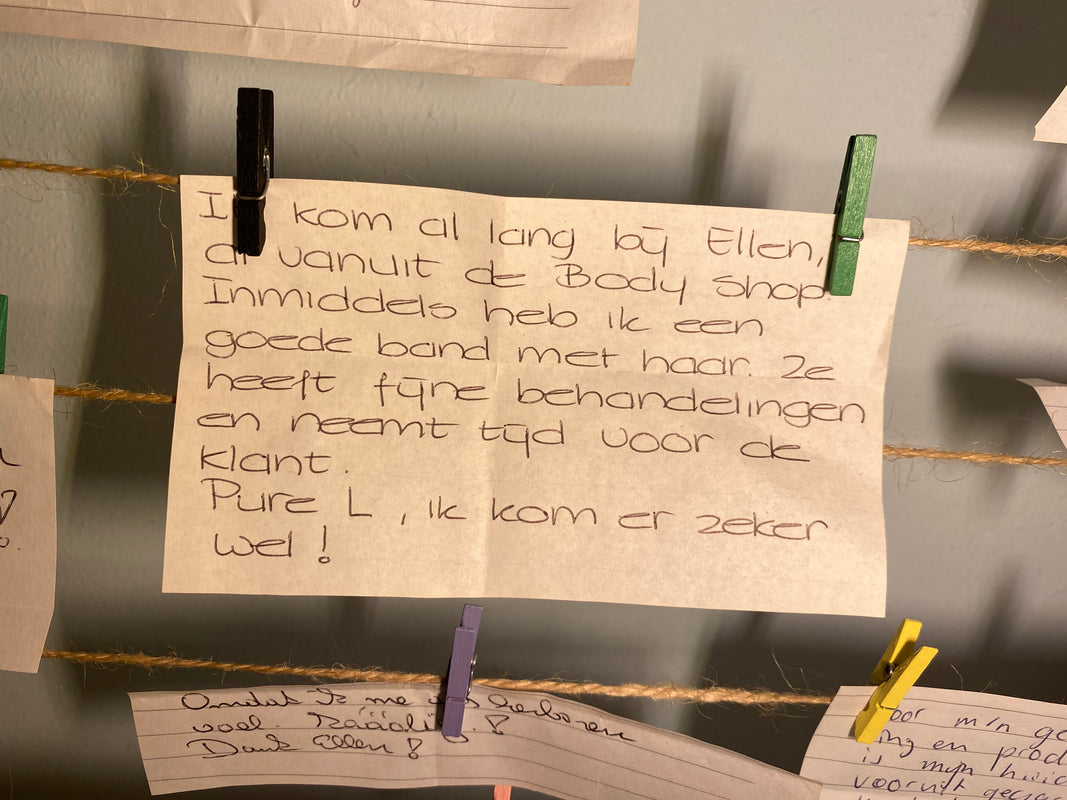 I kom al lang bij Ellen,
al vanuit de Body Shop.
Inmiddels heb ik een
goede band met haar. Ze
heeft fijne behandelingen
en neemt tijd voor de
klant.
Pure L , ik kom er zeker
wel !
Omdat ik me herboren
voel. !
Dank Ellen !
m'n ge
ing en prod
is mijn huid
vooruit gegaa